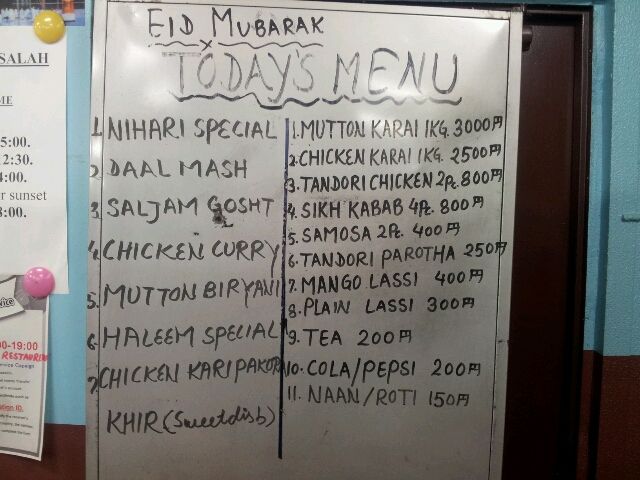 EID MUBARAK
TODAY'S MENU
1. NIHARI SPECIAL
2. DAAL MASH
3. SALJAM GOSHT
4. CHICKEN CURRY
5. MUTTON BIRYANI
6. HALEEM SPECIAL
7. CHICKEN KARI PAKORA
KHIR (Sweetdish)
1. MUTTON KARAI 1KG. 3000円
2. CHICKEN KARAI 1KG. 2500円
3. TANDORI CHICKEN 2Pc. 800円
4. SIKH KABAB 4Pc. 800円
5. SAMOSA 2Pc. 400円
6. TANDORI PAROTHA 250円
7. MANGO LASSI 400円
8. PLAIN LASSI 300円
9. TEA 200円
10. COLA/PEPSI 200円
11. NAAN/ROTI 150円
SALAH
ME
5:00.
12:30.
4:00.
r sunset
8:00.
vice
00-19:00
RESTAURAN